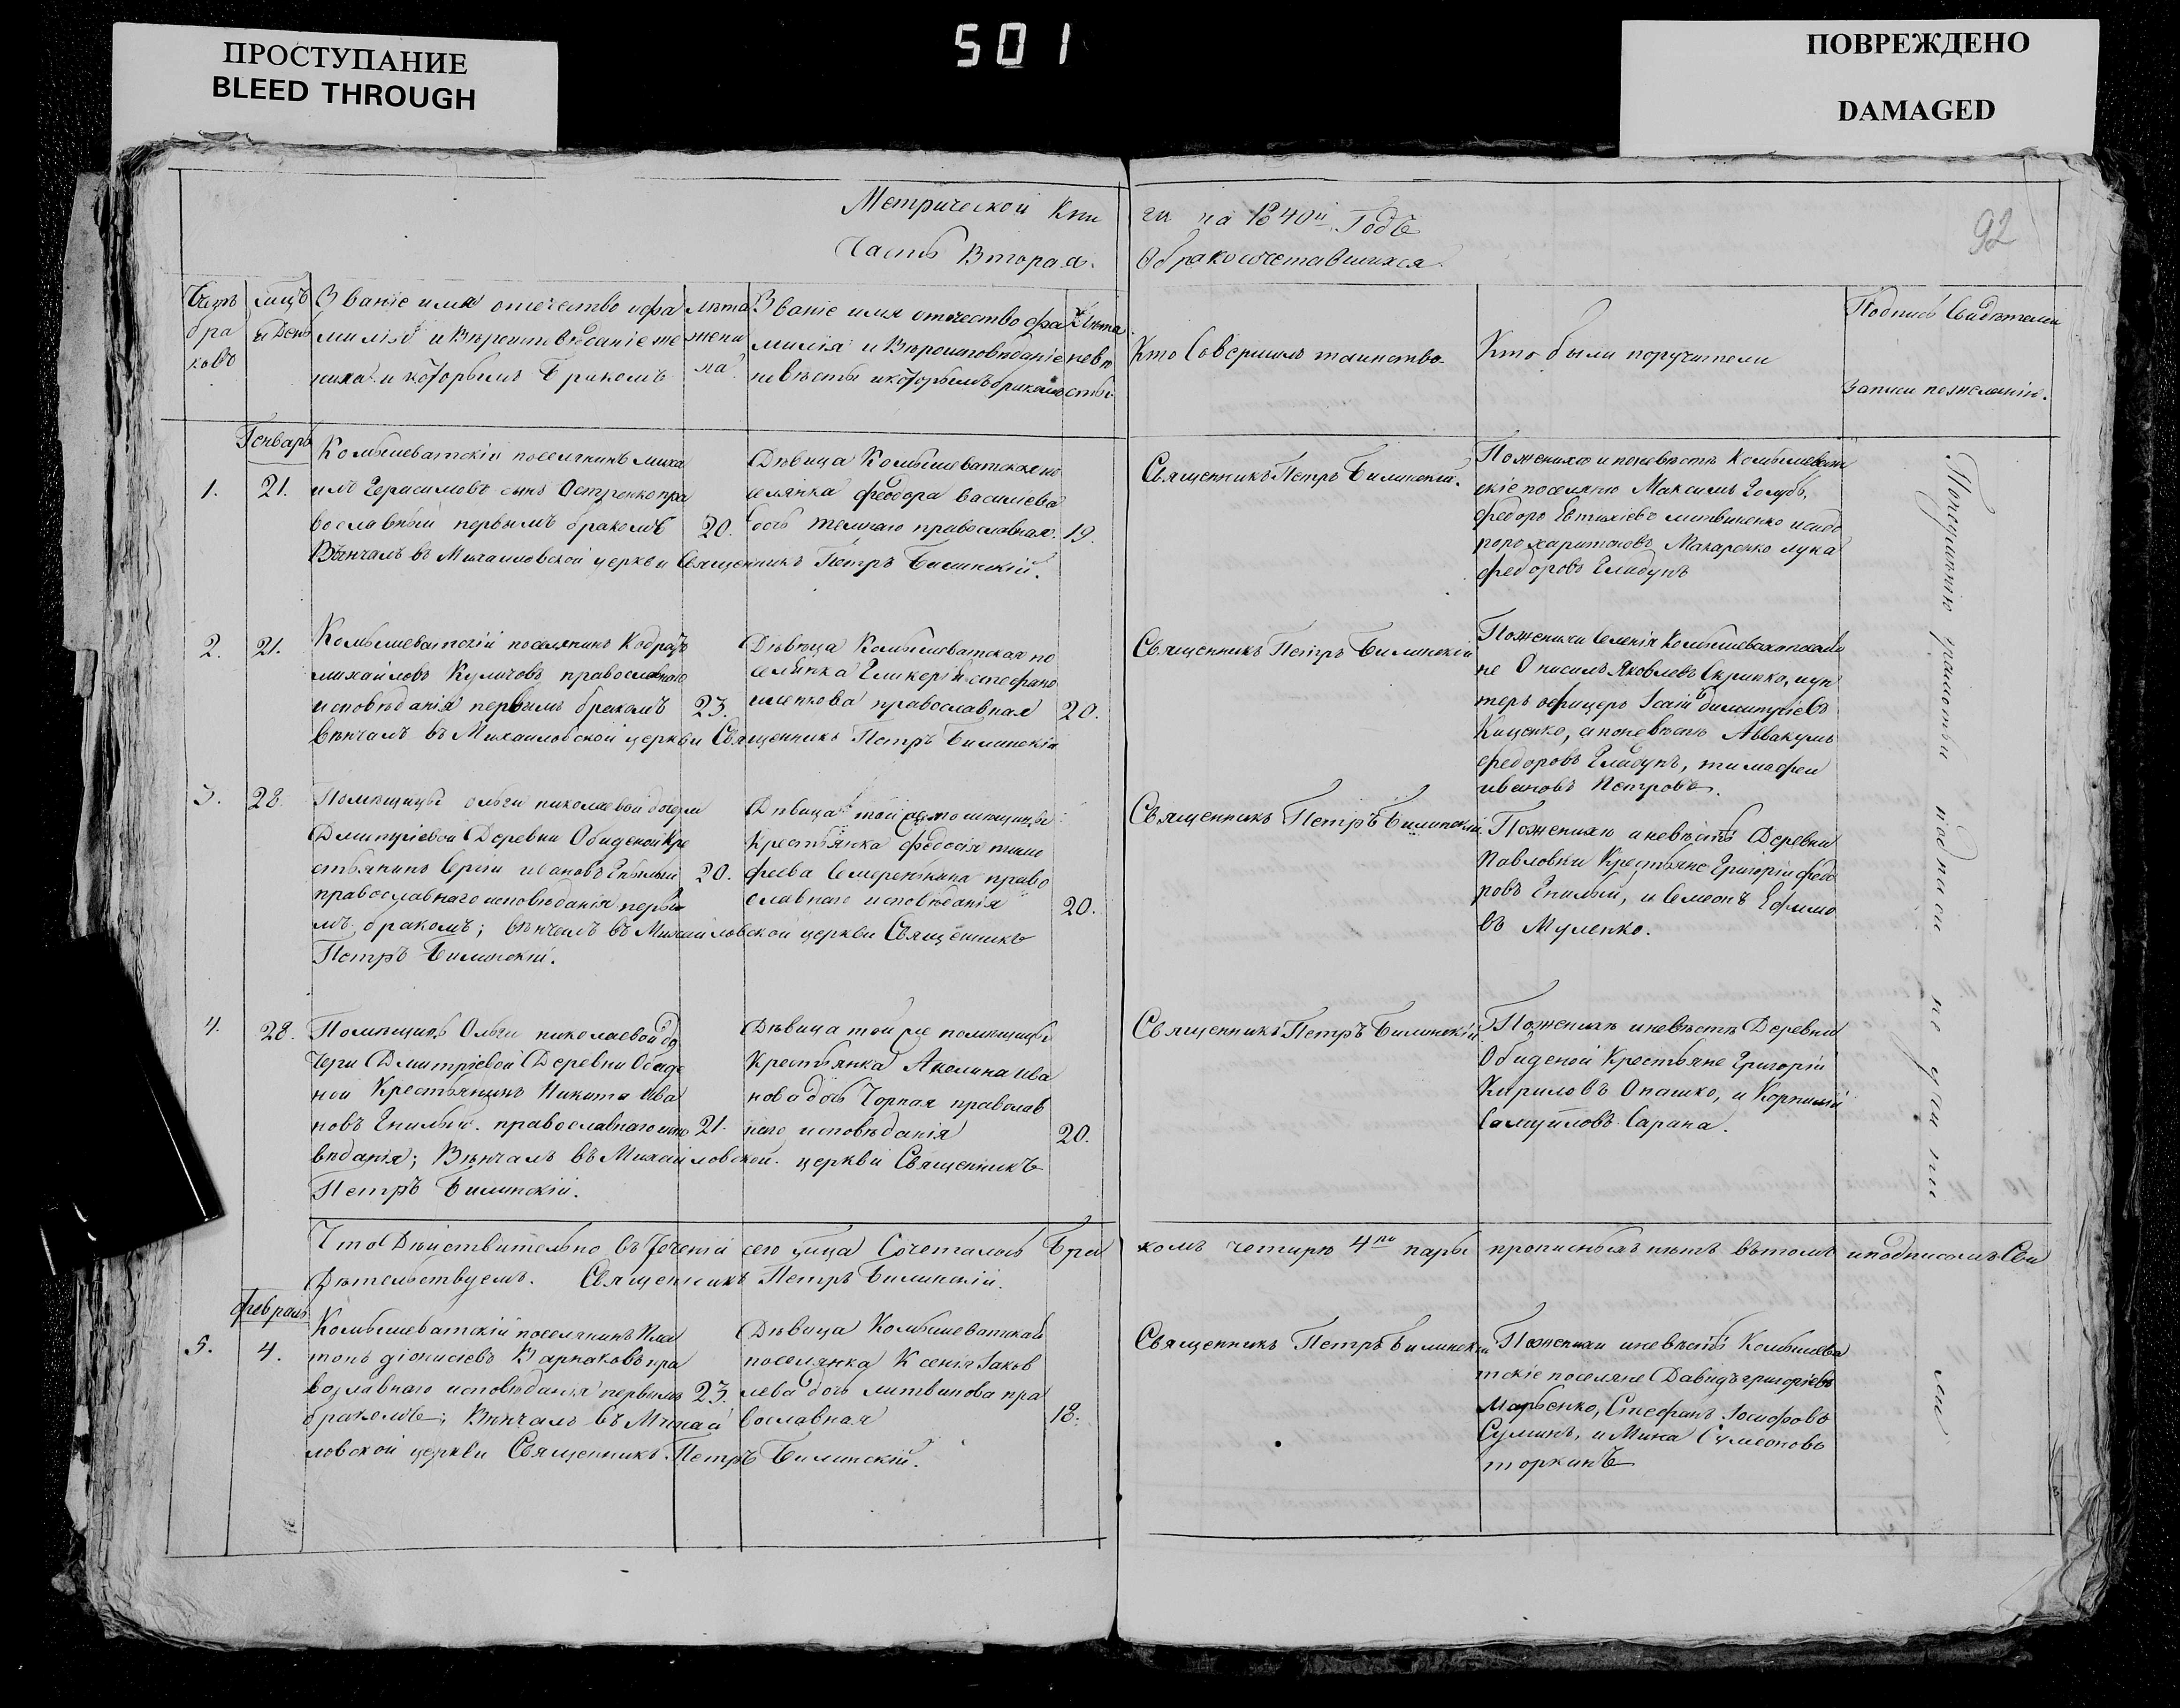 501
ПРОСТУПАНИЕ
BLEED THROUGH
ПОВРЕЖДЕНО
DAMAGED
92
Метрической Кни
Часть Вторая.
ги на 1840й Годъ
О бракосочетавшихся
Званіе имя отечество и фа
милія и Вѣроисповѣданіе же
ниха и которымъ Бракомъ
лѣта
жени
ха
Званіе имя отчество фа
милія и Вѣроисповѣданіе
невѣсты и которымъ бракомъ
Лѣта
невѣ
сты
Кто Совершилъ таинство
Кто были поручители
Подпись Свидѣтелей
записи по желанію.
Генварь
1.
21.
Комышеватскій поселянинъ миха
илъ Герасимовъ сынъ Остренко пра
вославный первымъ бракомъ
20.
Вѣнчалъ въ Михаиловской церкви Священникъ Петръ Билинскій.
Дѣвица Комышеватская по
селянка феодора василіева
дочь православная.
19.
Священникъ Петръ Билинскій.
По женихѣ и по невѣстѣ Комышеват
скіе поселяне Максимъ Голубъ,
федоръ Евтихіевъ литвиненко исидо
ръ харитоновъ Макаренко лука
федоровъ Гладунъ
2.
21.
Комышеватскій поселянинъ Кодратъ
михайловъ Куличовъ православнаго
исповѣданія первымъ бракомъ
23.
вѣнчалъ въ Михаиловской церкви Священникъ Петръ Билинскій
Дѣвица Комышеватская по
селянка Гликерія стефано
православная
20.
Священникъ Петръ Билинскій
не Онисимъ Яковлевъ Скрипко, ун
теръ офицеръ Димитріевъ
Каценко, а по невѣстѣ Аввакумъ
федоровъ Гладунъ, тимофей
ивановъ Петровъ.
3.
28.
Помѣщицы ольги николаевой дочери
Дмитріевой Деревни Обиденой Кре
стьянинъ Сергій ивановъ Гнилый
20.
православнаго исповѣданія первы
мъ бракомъ; вѣнчалъ въ Михаиловской церкви Священникъ
Петръ Билинскій.
Дѣвица той же помѣщицы
Крестьянка федосія тимо
феева право
славнаго исповѣданія
20.
Священникъ Петръ Билинскій
По женихѣ и невѣстѣ Деревни
Павловки Крестьяне Григорій федо
ровъ Гнилый, и Семеонъ Ефимо
въ Муленко.
4.
28.
Помѣщицы Ольги николаевой до
чери Дмитріевой Деревни Обиде
ной Крестьянинъ Никита Ива
новъ Гнилый. православнаго испо
21.
вѣданія; Вѣнчалъ въ Михаиловской церкви Священникъ
Петръ Билинскій.
Дѣвица той же помѣщицы
Крестьянка Аколина ива
нова дочь Чорная православ
наго исповѣданія
20.
Священникъ Петръ Билинскій
По женихѣ и невѣстѣ Деревни
Обиденой Крестьяне Григорій
Кириловъ Опашко, и Корнилій
Самуиловъ Сарана.
Что Дѣйствительно въ теченіи сего Сочеталось Бра
комъ четыре 4 пары прописныхъ нѣтъ въ томъ и подписомъ Сви
дѣтельствуемъ. Священникъ Петръ Билинскій.
февраль
5.
4.
Комышеватскій поселянинъ Пла
тонъ діонисіевъ Варнаковъ пра
вославнаго исповѣданія первымъ
23.
бракомъ; Вѣнчалъ въ Михай
ловской церкви Священникъ Петръ Билинскій.
Дѣвица Комышеватская
поселянка Ксенія Іаков
лева дочь литвинова пра
вославная
18.
Священникъ Петръ Билинскій
По женихѣ и невѣстѣ Комышева
тскіе поселяне Давидъ григоріевъ
Марѣенко, Стефанъ Іосифовъ
Суминъ, и Мина Сумеоновъ
торкинъ
По неумѣнію грамоты подписи не учинили